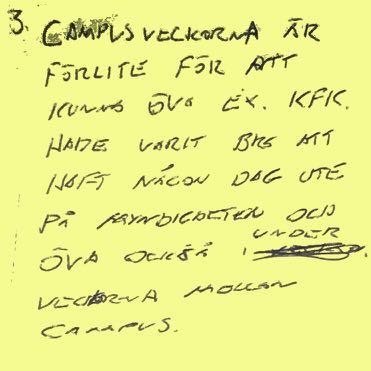 3. CAMPUSVECKORNA ÄR
FÖRLITE FÖR ATT
KUNNA ÖVA EX. KFK.
HADE VARIT BRA ATT
HAFT NÅGON DAG UTE
PÅ MYNDIGHETEN OCH
ÖVA OCKSÅ I UNDER
VECKORNA MELLAN
CAMPUS.